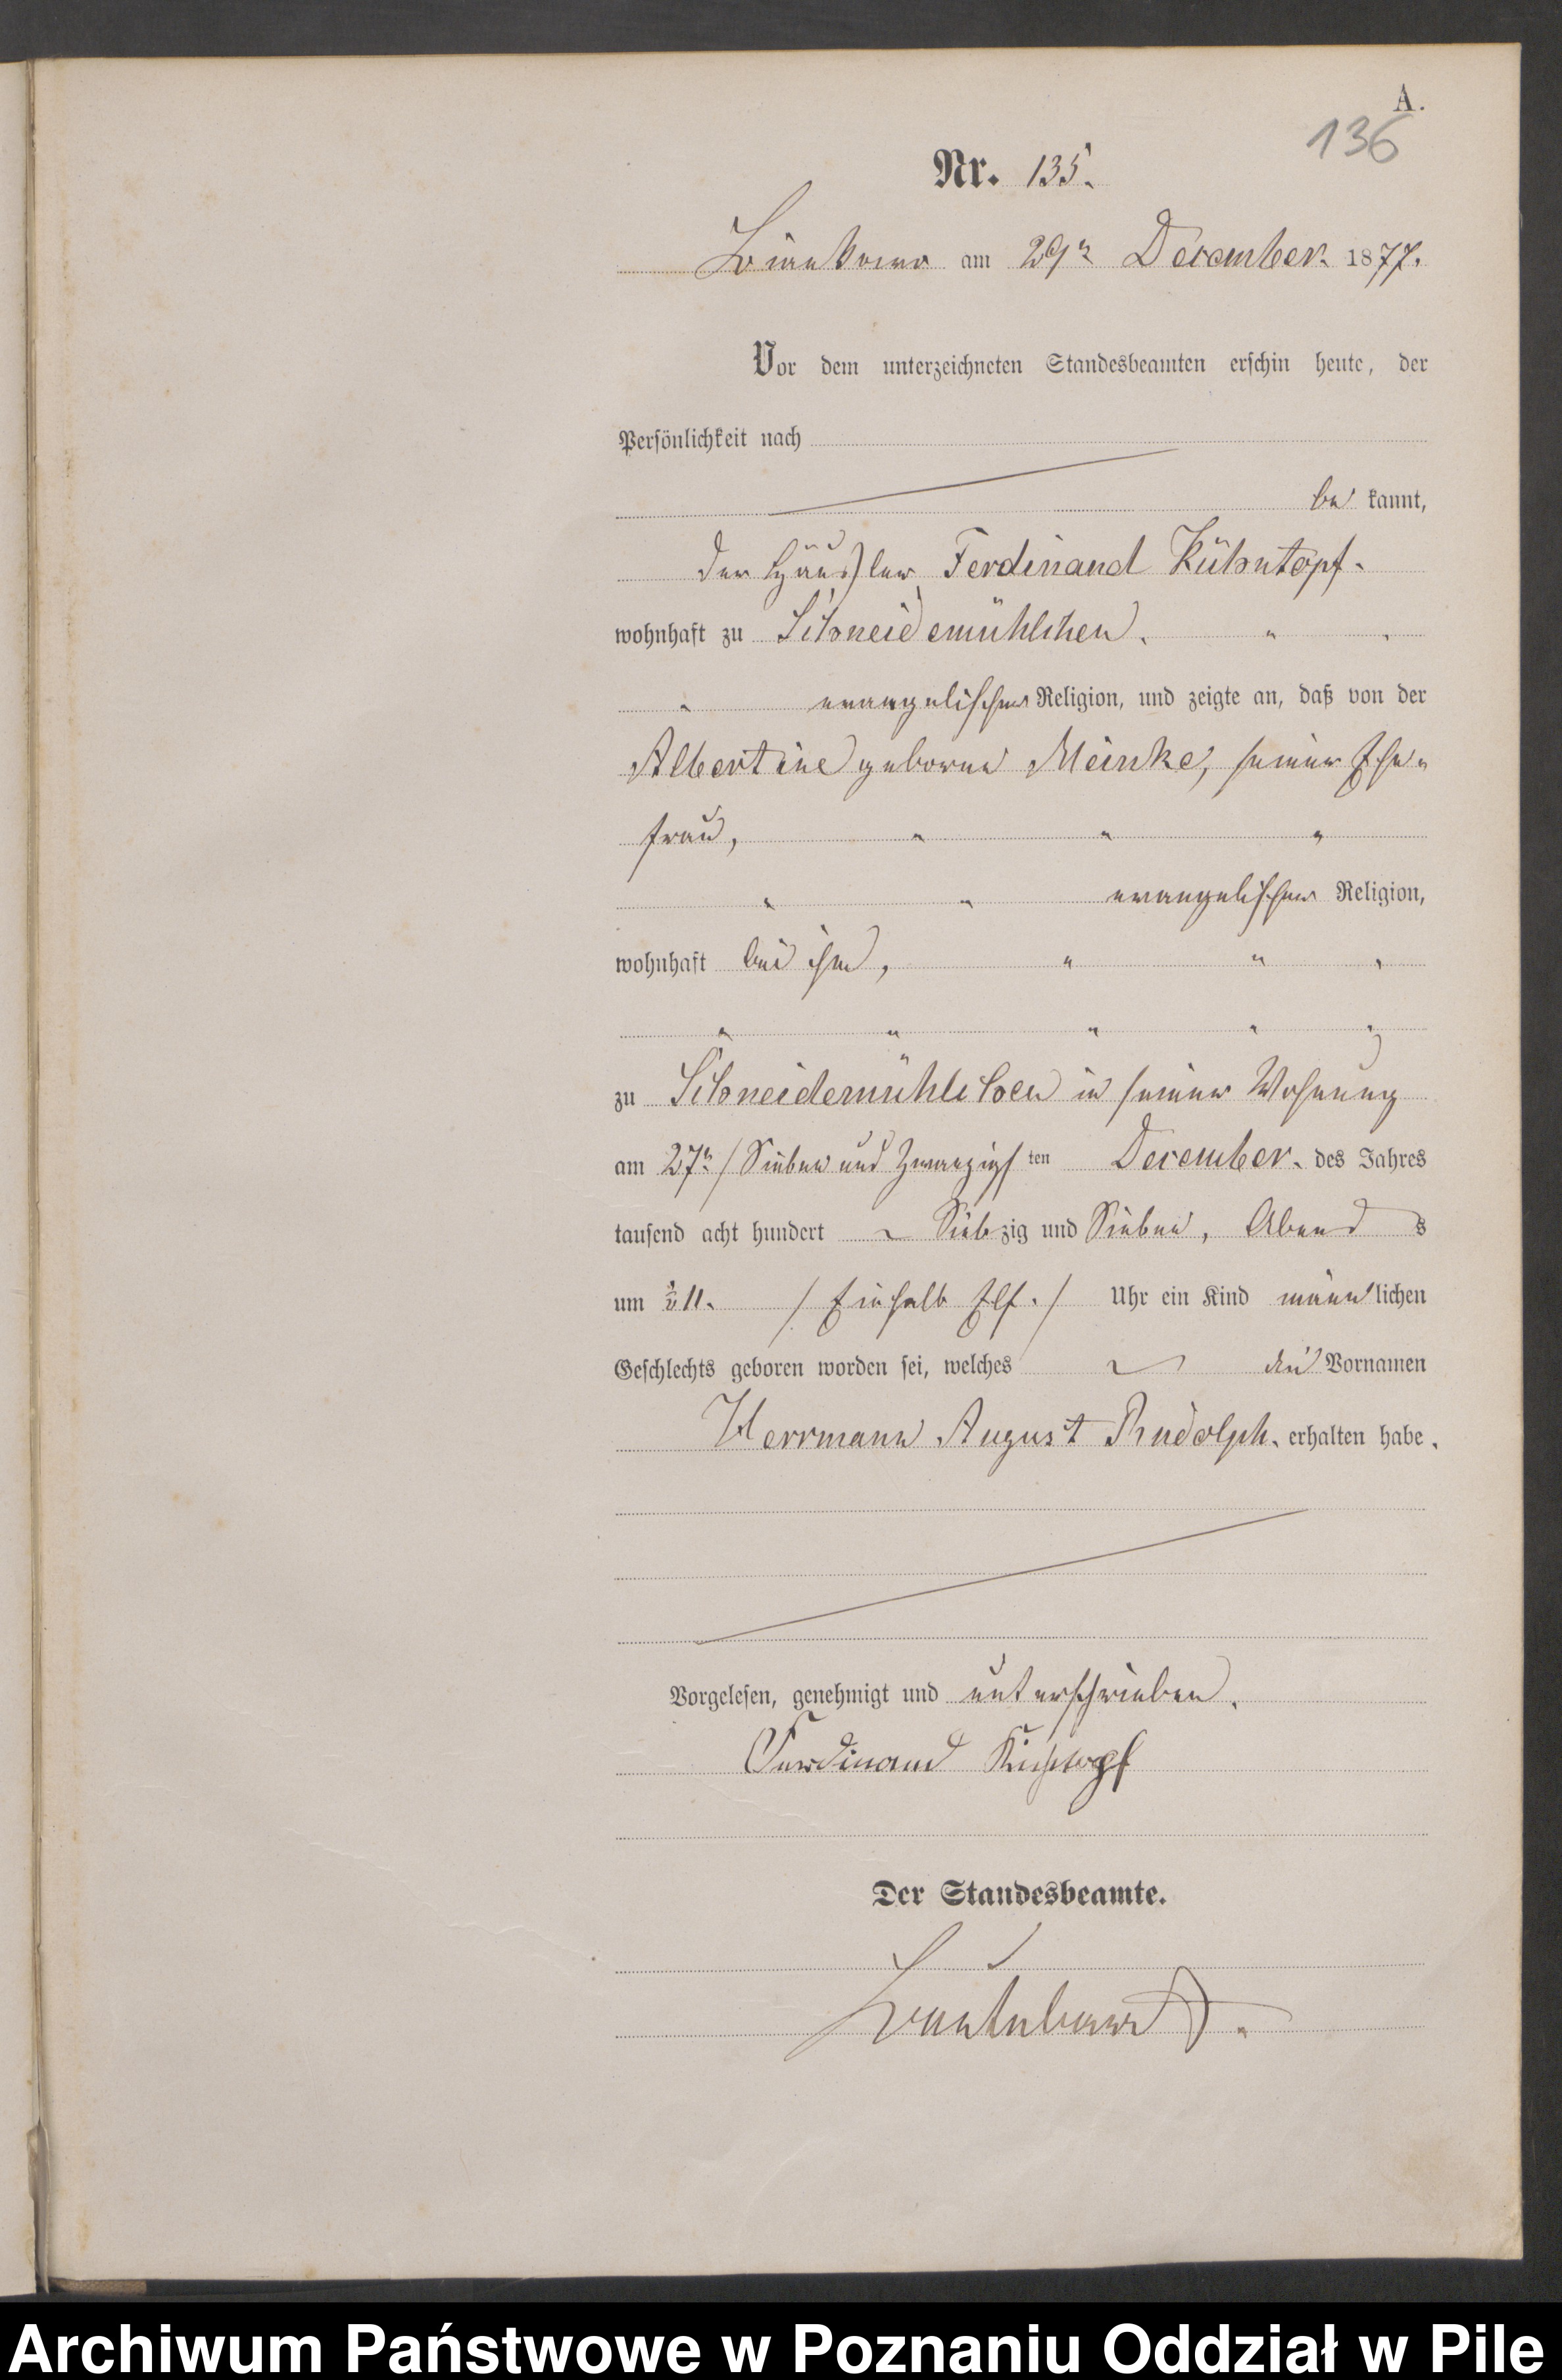 A.
136
Nr. 135.
am 29n December 1877.
Vor dem unterzeichneten Standesbeamten erschin heute, der
Persönlichkeit nach
be kannt,
der Häusler Ferdinand Kühntopf.
wohnhaft zu Schneidemühlchen. " "
" evangelischer Religion, und zeigte an, daß von der
Albertine geborene Meinke, seiner Ehe-
frau, " " "
" " evangelischer Religion,
wohnhaft bei ihm, " " "
" " " " "
zu Schneidemühlchen in seiner Wohnung
am 27n / Sieben und Zwanzigs ten December. des Jahres
tausend acht hundert Siebzig und Sieben, Abend s
um ½11. / Einhalb Elf. / Uhr ein Kind männlichen
Geschlechts geboren worden sei, welches die Vornamen
Herrmann August Rudolph. erhalten habe.
Vorgelesen, genehmigt und unterschrieben.
Ferdinand
Der Standesbeamte.
Archiwum Państwowe w Poznaniu Oddział w Pile